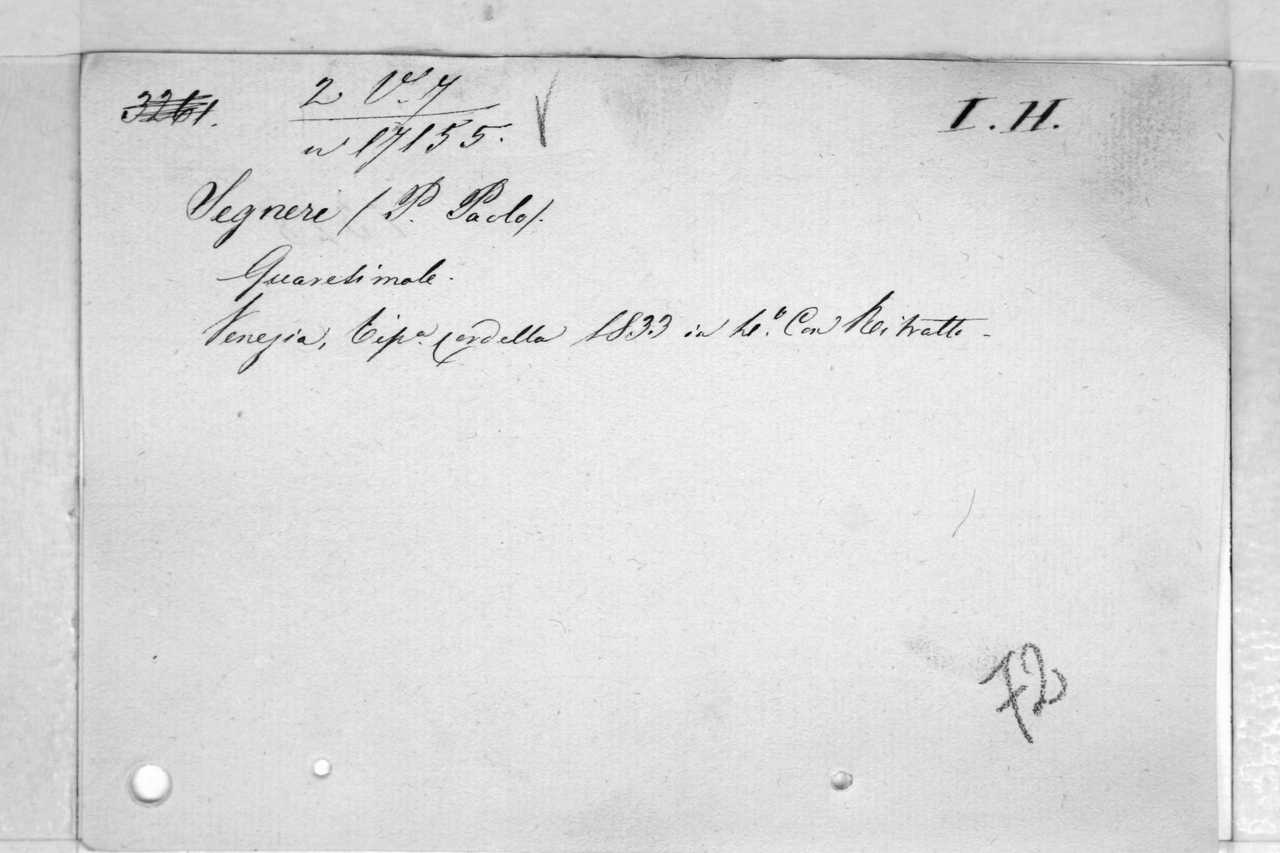 3261. I. H.
2 Vol. 7
n 17155.
Segneri (P. Paolo).
Quaresimale.
Venezia, Tip.ª Cordella 1833 in 4.º Con Ritratto -
72